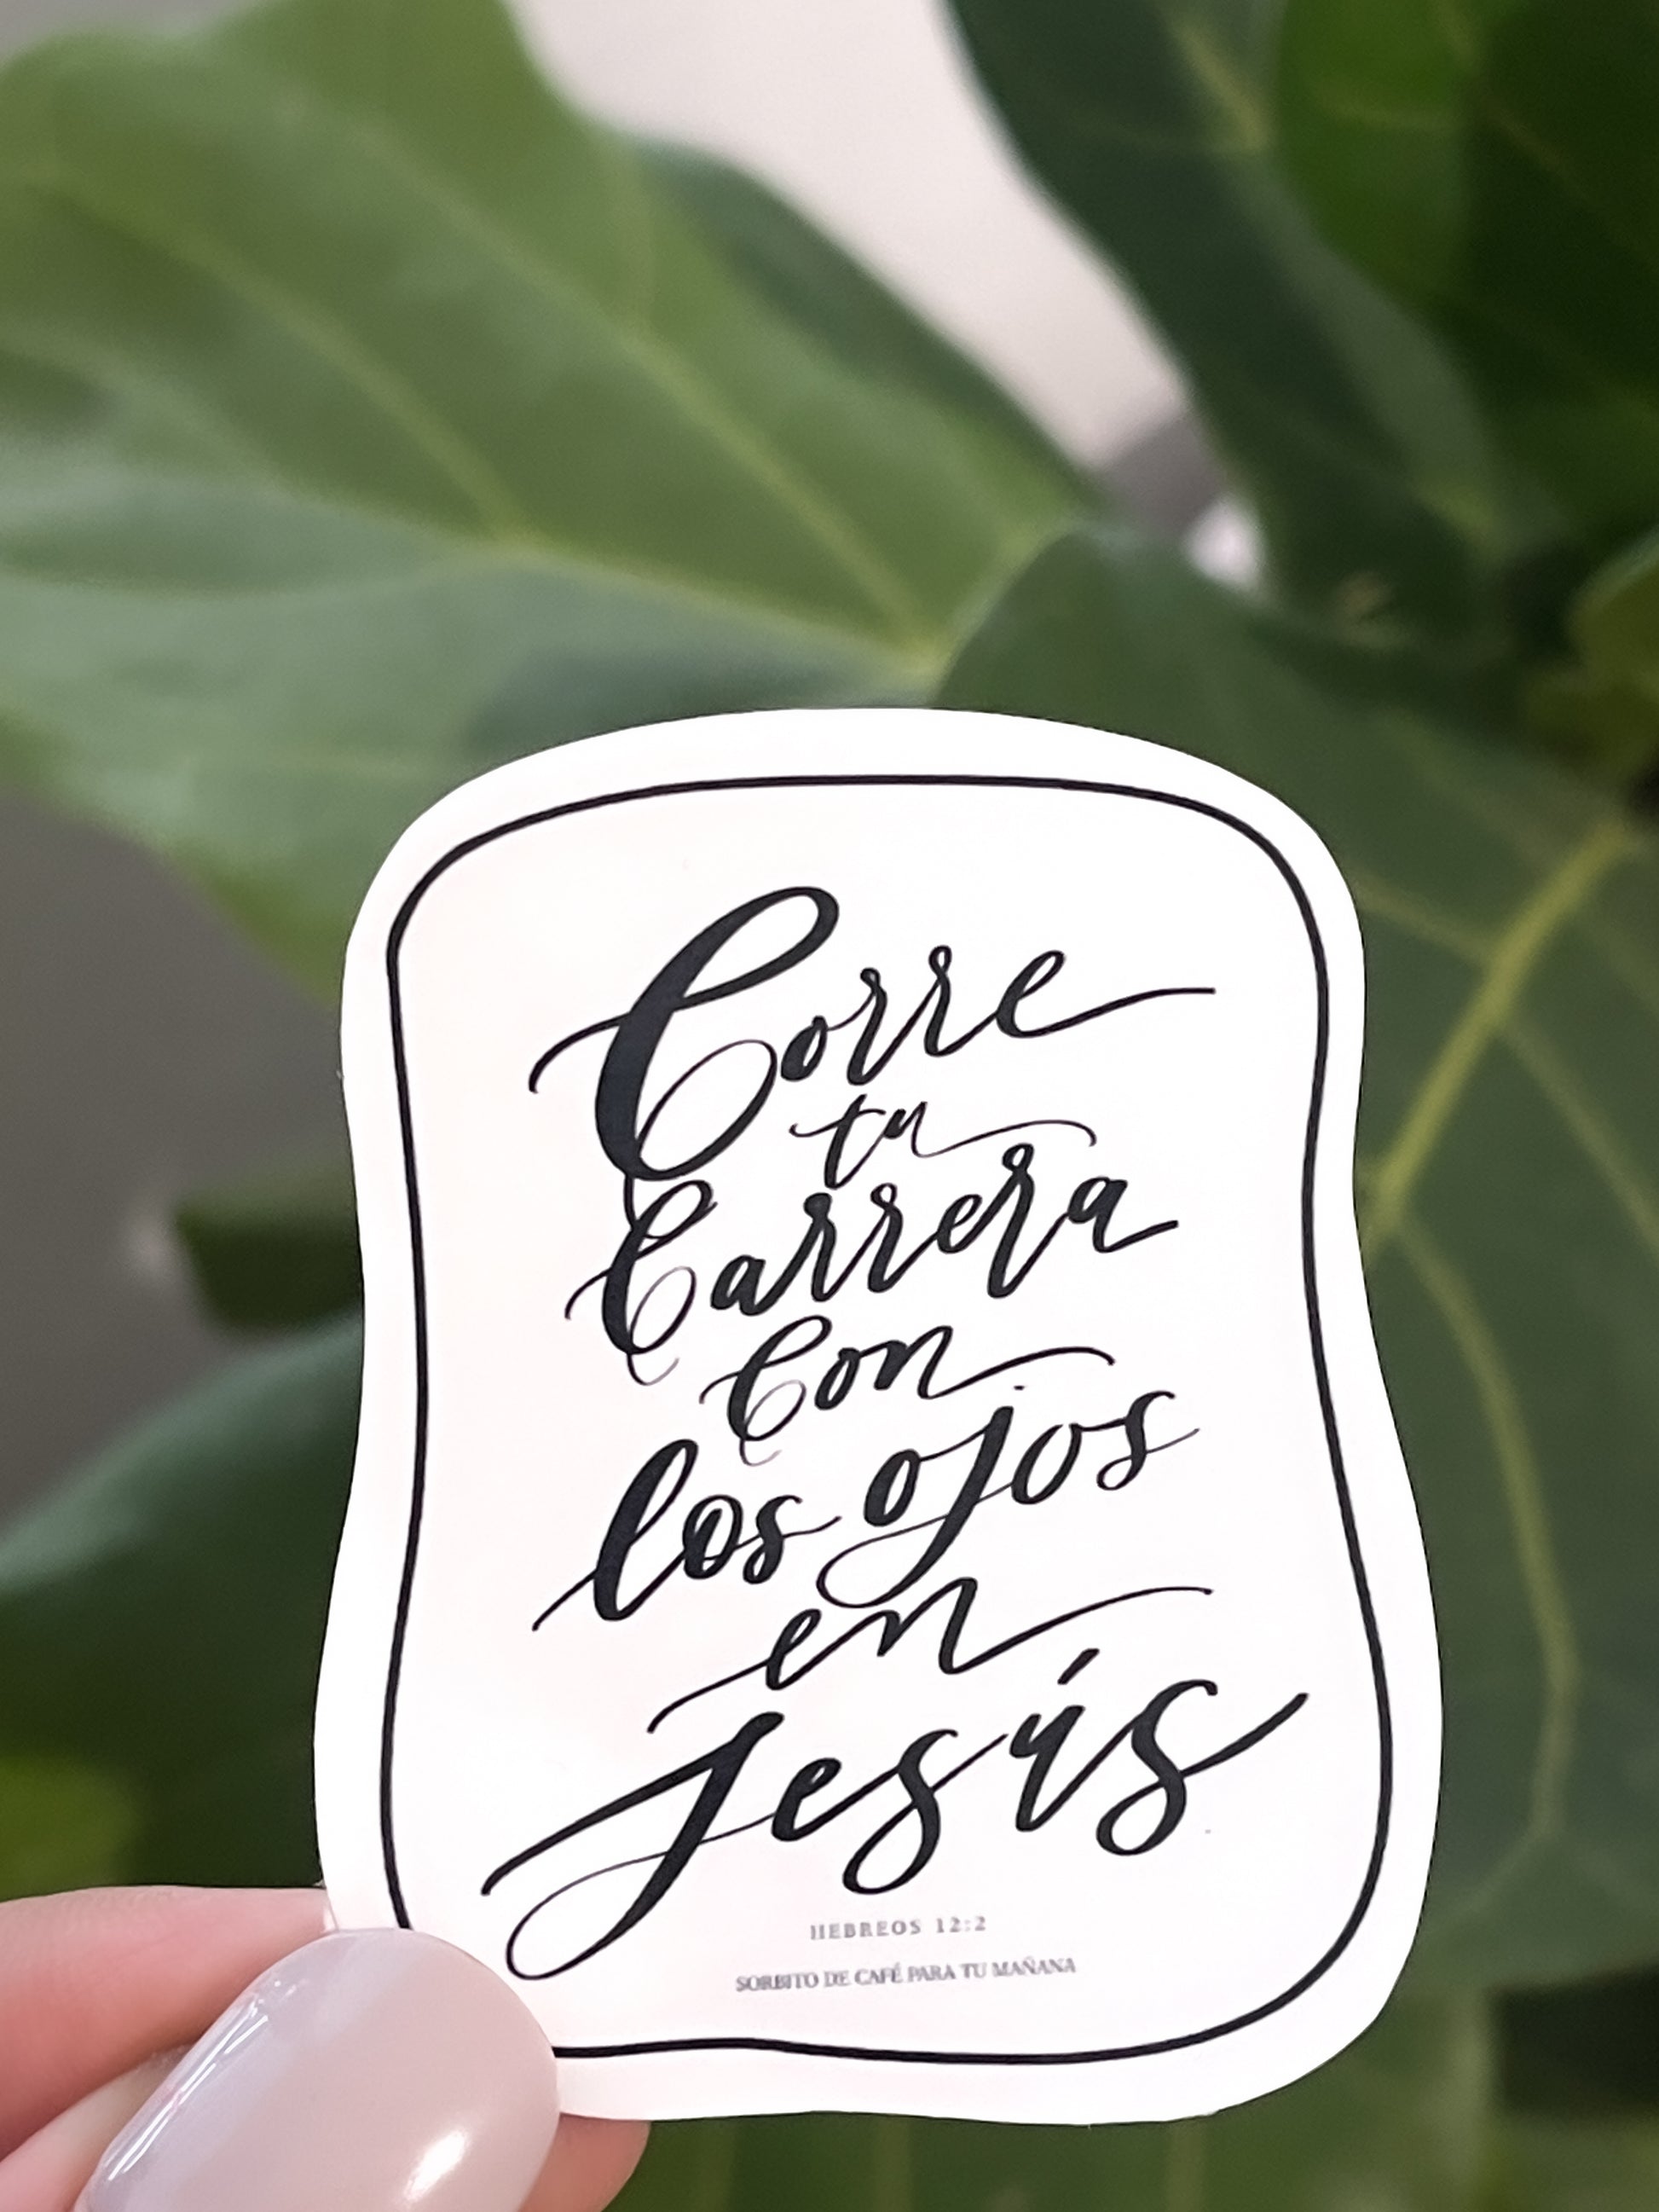 Corre
tu
Carrera
Con
los ojos
en
Jesús
HEBREOS 12:2
SORBITO DE CAFÉ PARA TU MAÑANA